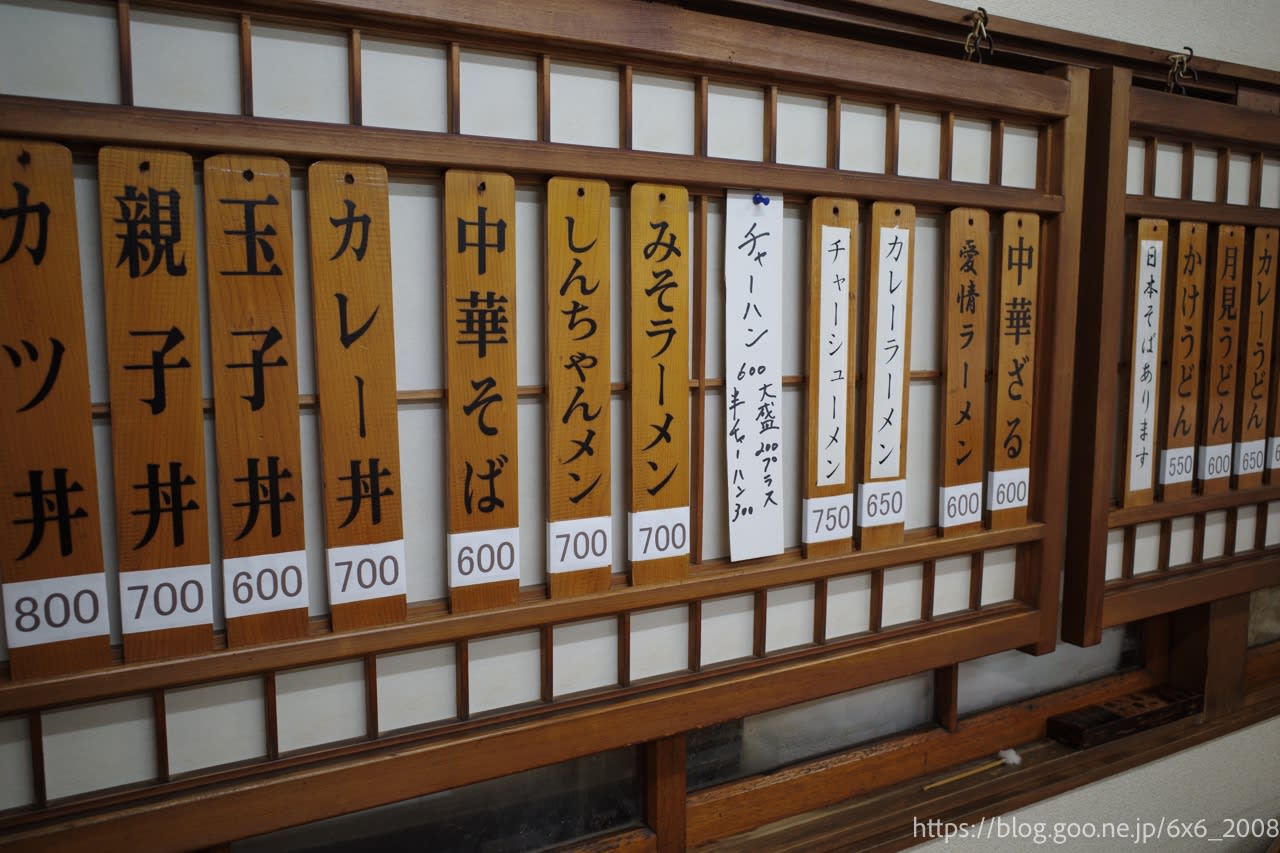 カツ丼
800
親子丼
700
玉子丼
600
カレー丼
700
中華そば
600
しんちゃんメン
700
みそラーメン
700
チャーハン 600
大盛200プラス
半チャーハン300
チャーシューメン
750
カレーラーメン
650
愛情ラーメン
600
中華ざる
600
日本そばあります
かけうどん
550
月見うどん
600
カレーうどん
650
https://blog.goo.ne.jp/6x6_2008